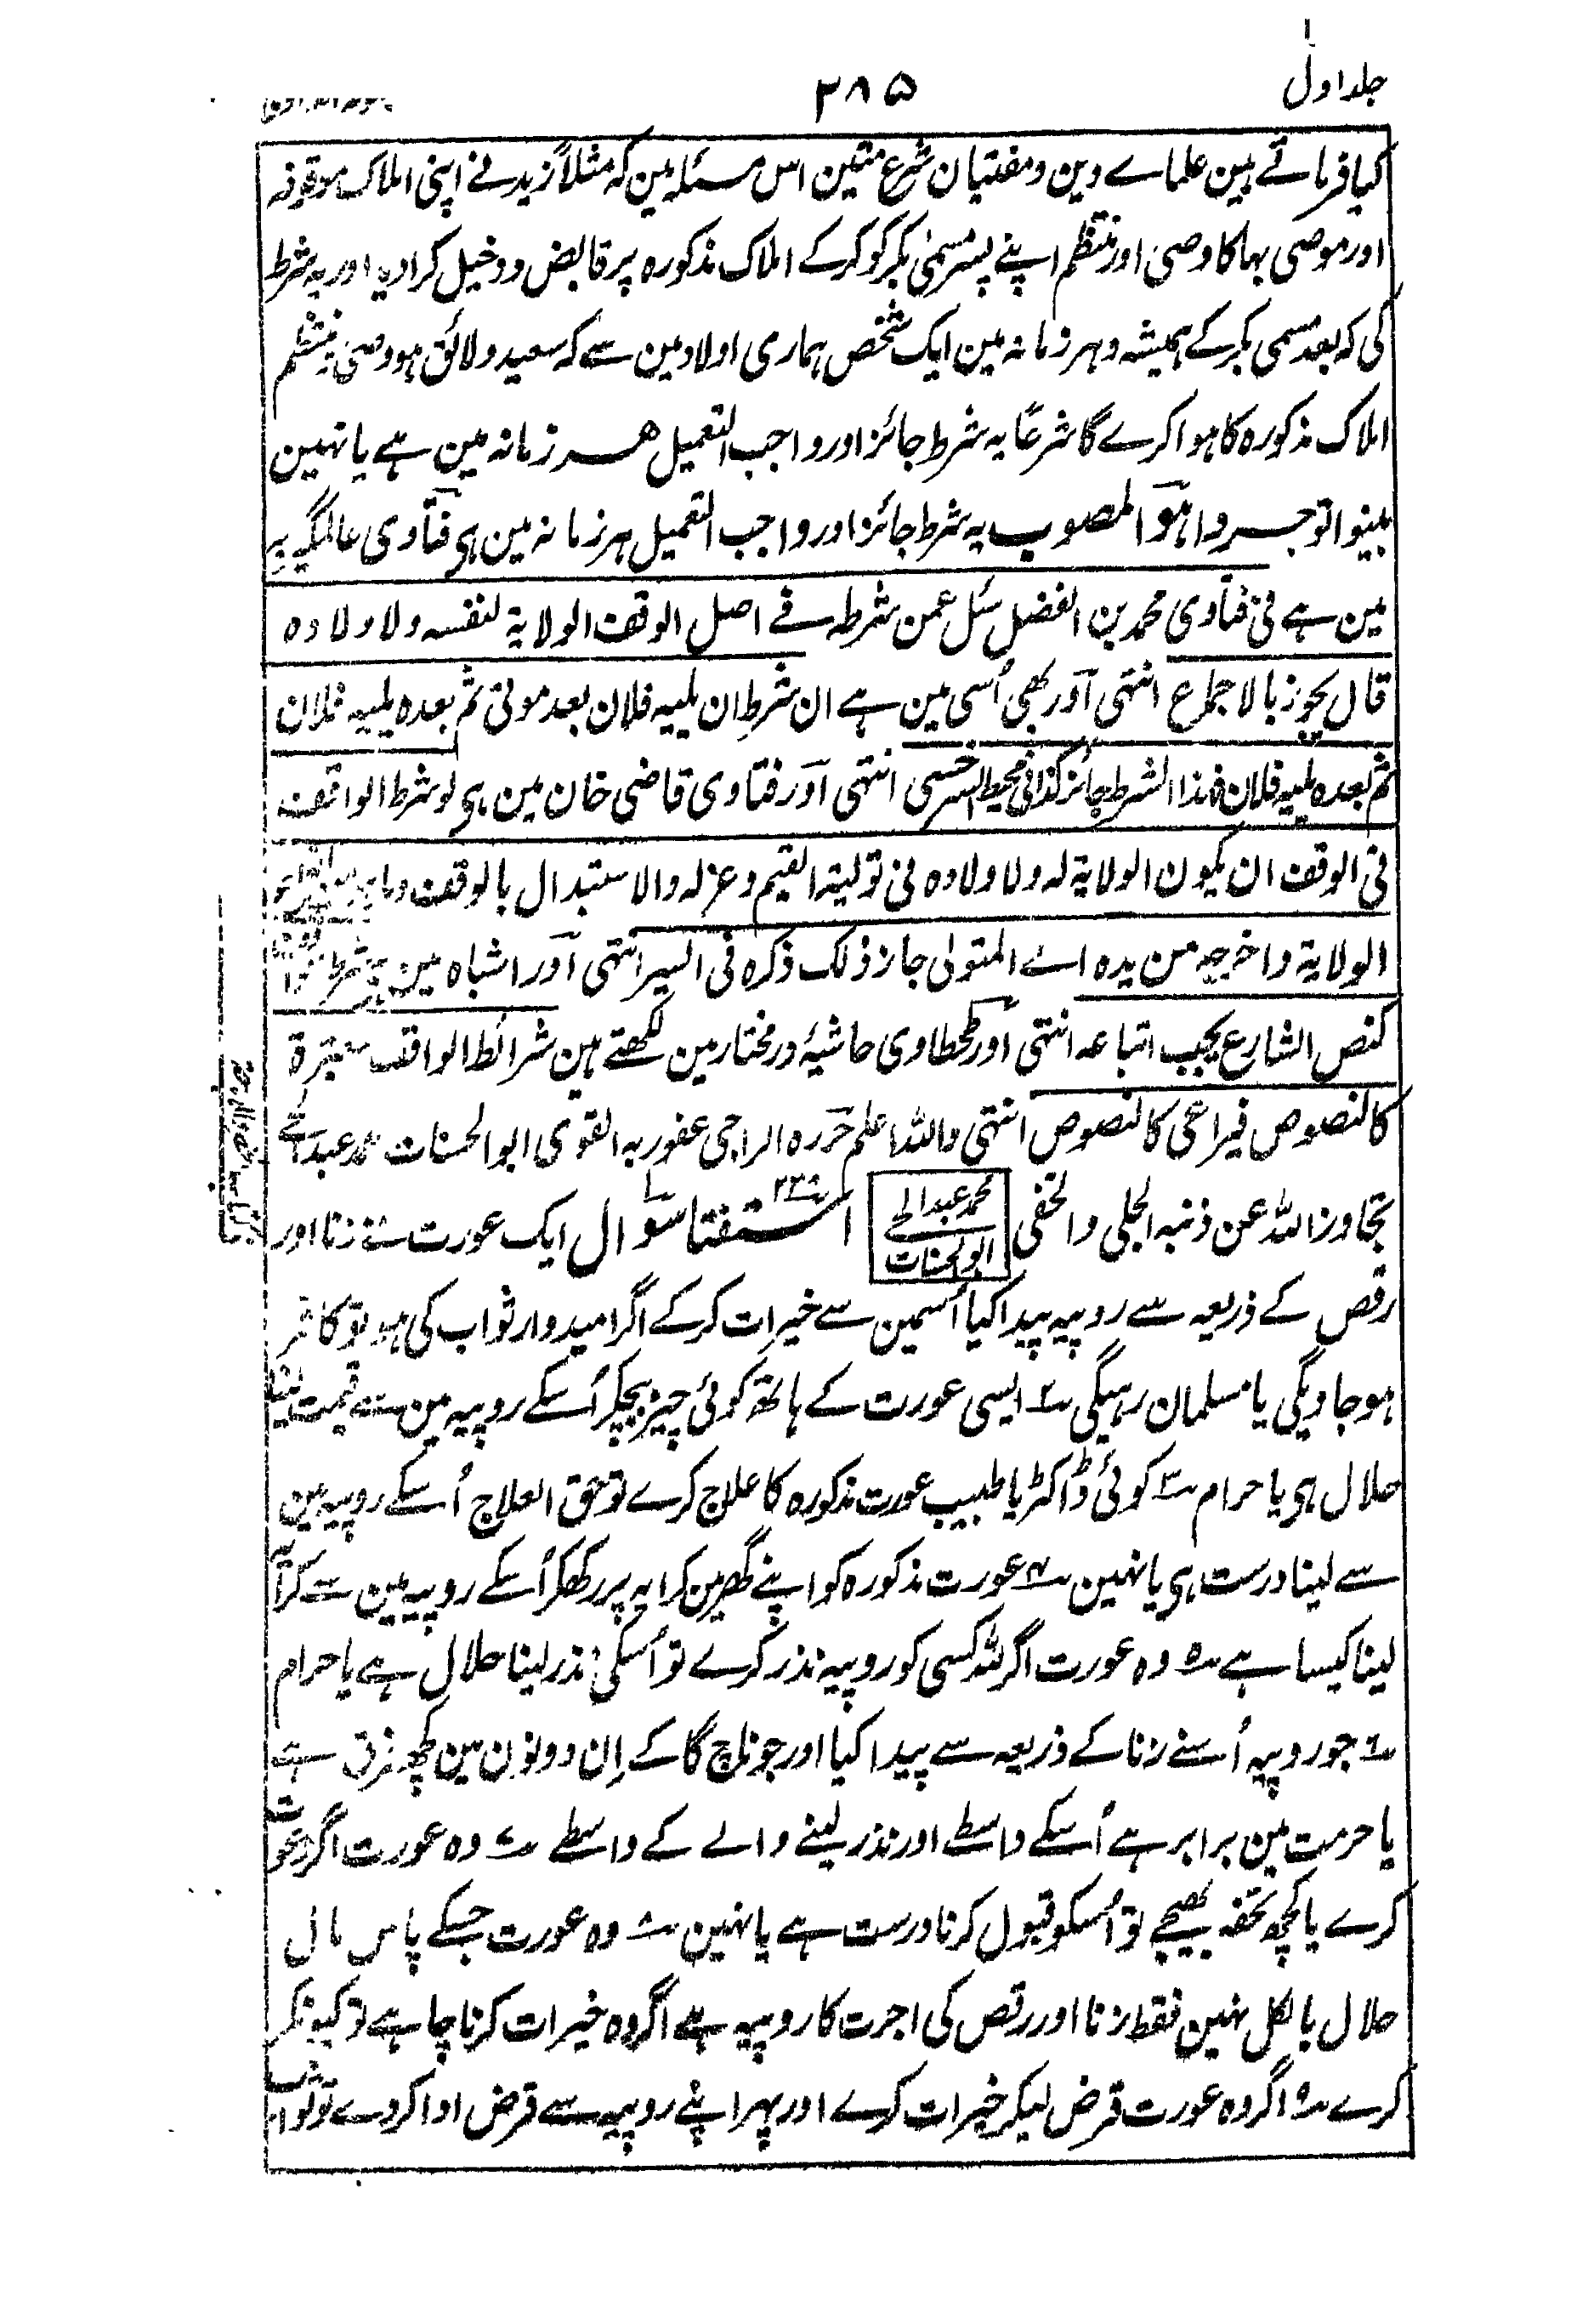 جلد اول
۲۸۵
کیا فرماتے ہین علماے دین و مفتیان شرع متین اس مسئلہ مین کہ مثلاً زید نے اپنی املاک موقوفہ
اور موصی بہا کا وصی اور منتظم اپنے پسر مسمیٰ بکر کو کر کے املاک مذکورہ پر قابض و دخیل کرا دیا اور یہ شرط
کی کہ بعد مسمی بکر کے ہمیشہ و ہر زمانہ مین ایک شخص ہماری اولاد مین سے کہ سعید و لائق ہو وصی و منتظم
املاک مذکورہ کا ہوا کرے گا شرعًا یہ شرط جائز اور واجب التعمیل ہر زمانہ مین ہے یا نہین
بینوا توجروا ہو المصوب یہ شرط جائز اور واجب التعمیل ہر زمانہ مین ہی فتاوی عالمگیریہ
مین ہے فی فتاوی محمد بن الفضل سئل عمن شرط فے اصل الوقف الولایة لنفسه ولاولاده
قال یجوز بالاجماع انتہی اور بھی اُسی مین ہے ان شرط ان یلیه فلان بعد موتی ثم بعده یلیه فلان
ثم بعده یلیه فلان فهذا الشرط جائز کذا فی محیط السرخسی انتہی اور فتاوی قاضی خان مین ہی لو شرط الواقف
فی الوقف ان یکون الولایة له ولاولاده فی تولیة القیم وعزله والاستبدال بالوقف وما
الولایة واخرجه من یده اے المتولی جاز ذلک ذکره فی السیر انتہی اور اشباہ مین شرط
کنص الشارع یجب اتباعه انتہی اور طحطاوی حاشیۂ در مختار مین لکھتے ہین شرائط الواقف معتبرة
کالنصوص فیراعی کالنصوص انتہی واللہ اعلم حررہ الراجی عفو ربہ القوی ابو الحسنات محمد عبد الحے
تجاوز اللہ عن ذنبہ الجلی والخفی محمد عبد الحے ابو الحسنات استفتا سوال ایک عورت نے زنا اور
رقص کے ذریعہ سے روپیہ پیدا کیا اُسمین سے خیرات کر کے اگر امیدوار ثواب کی ہو تو کافر
ہو جاویگی یا مسلمان رہیگی ۲ ایسی عورت کے ہاتھ کوئی چیز بیچکر اُسکے روپیہ مین سے قیمت لینا
حلال ہی یا حرام ۳ کوئی ڈاکٹر یا طبیب عورت مذکورہ کا علاج کرے تو حق العلاج اُسکے روپیہ مین
سے لینا درست ہی یا نہین ۴ عورت مذکورہ کو اپنے گھر مین کرایہ پر رکھکر اُسکے روپیہ مین سے کرایہ
لینا کیسا ہے ۵ وہ عورت اگر للہ کسی کو روپیہ نذر کرے تو اُسکی نذر لینا حلال ہے یا حرام
۶ جو روپیہ اُسنے زنا کے ذریعہ سے پیدا کیا اور جو ناچ گا کے اِن دونون مین کچھ فرق ہے
یا حرمت مین برابر ہے اُسکے واسطے اور نذر لینے والے کے واسطے ۷ وہ عورت اگر دعوت
کرے یا کچھ تحفہ بھیجے تو اُسکو قبول کرنا درست ہے یا نہین ۸ وہ عورت جسکے پاس مال
حلال بالکل نہین فقط زنا اور رقص کی اجرت کا روپیہ ہے اگر وہ خیرات کرنا چاہے تو کیونکر
کرے ۹ اگر وہ عورت قرض لیکر خیرات کرے اور پہر اپنے روپیہ سے قرض ادا کر دے تو ثواب